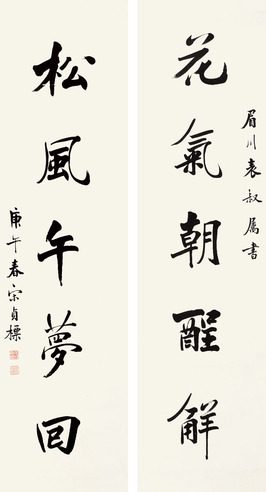 花氣朝醒解
眉川袁叔屬書
松風午夢回
庚午春宗貞標